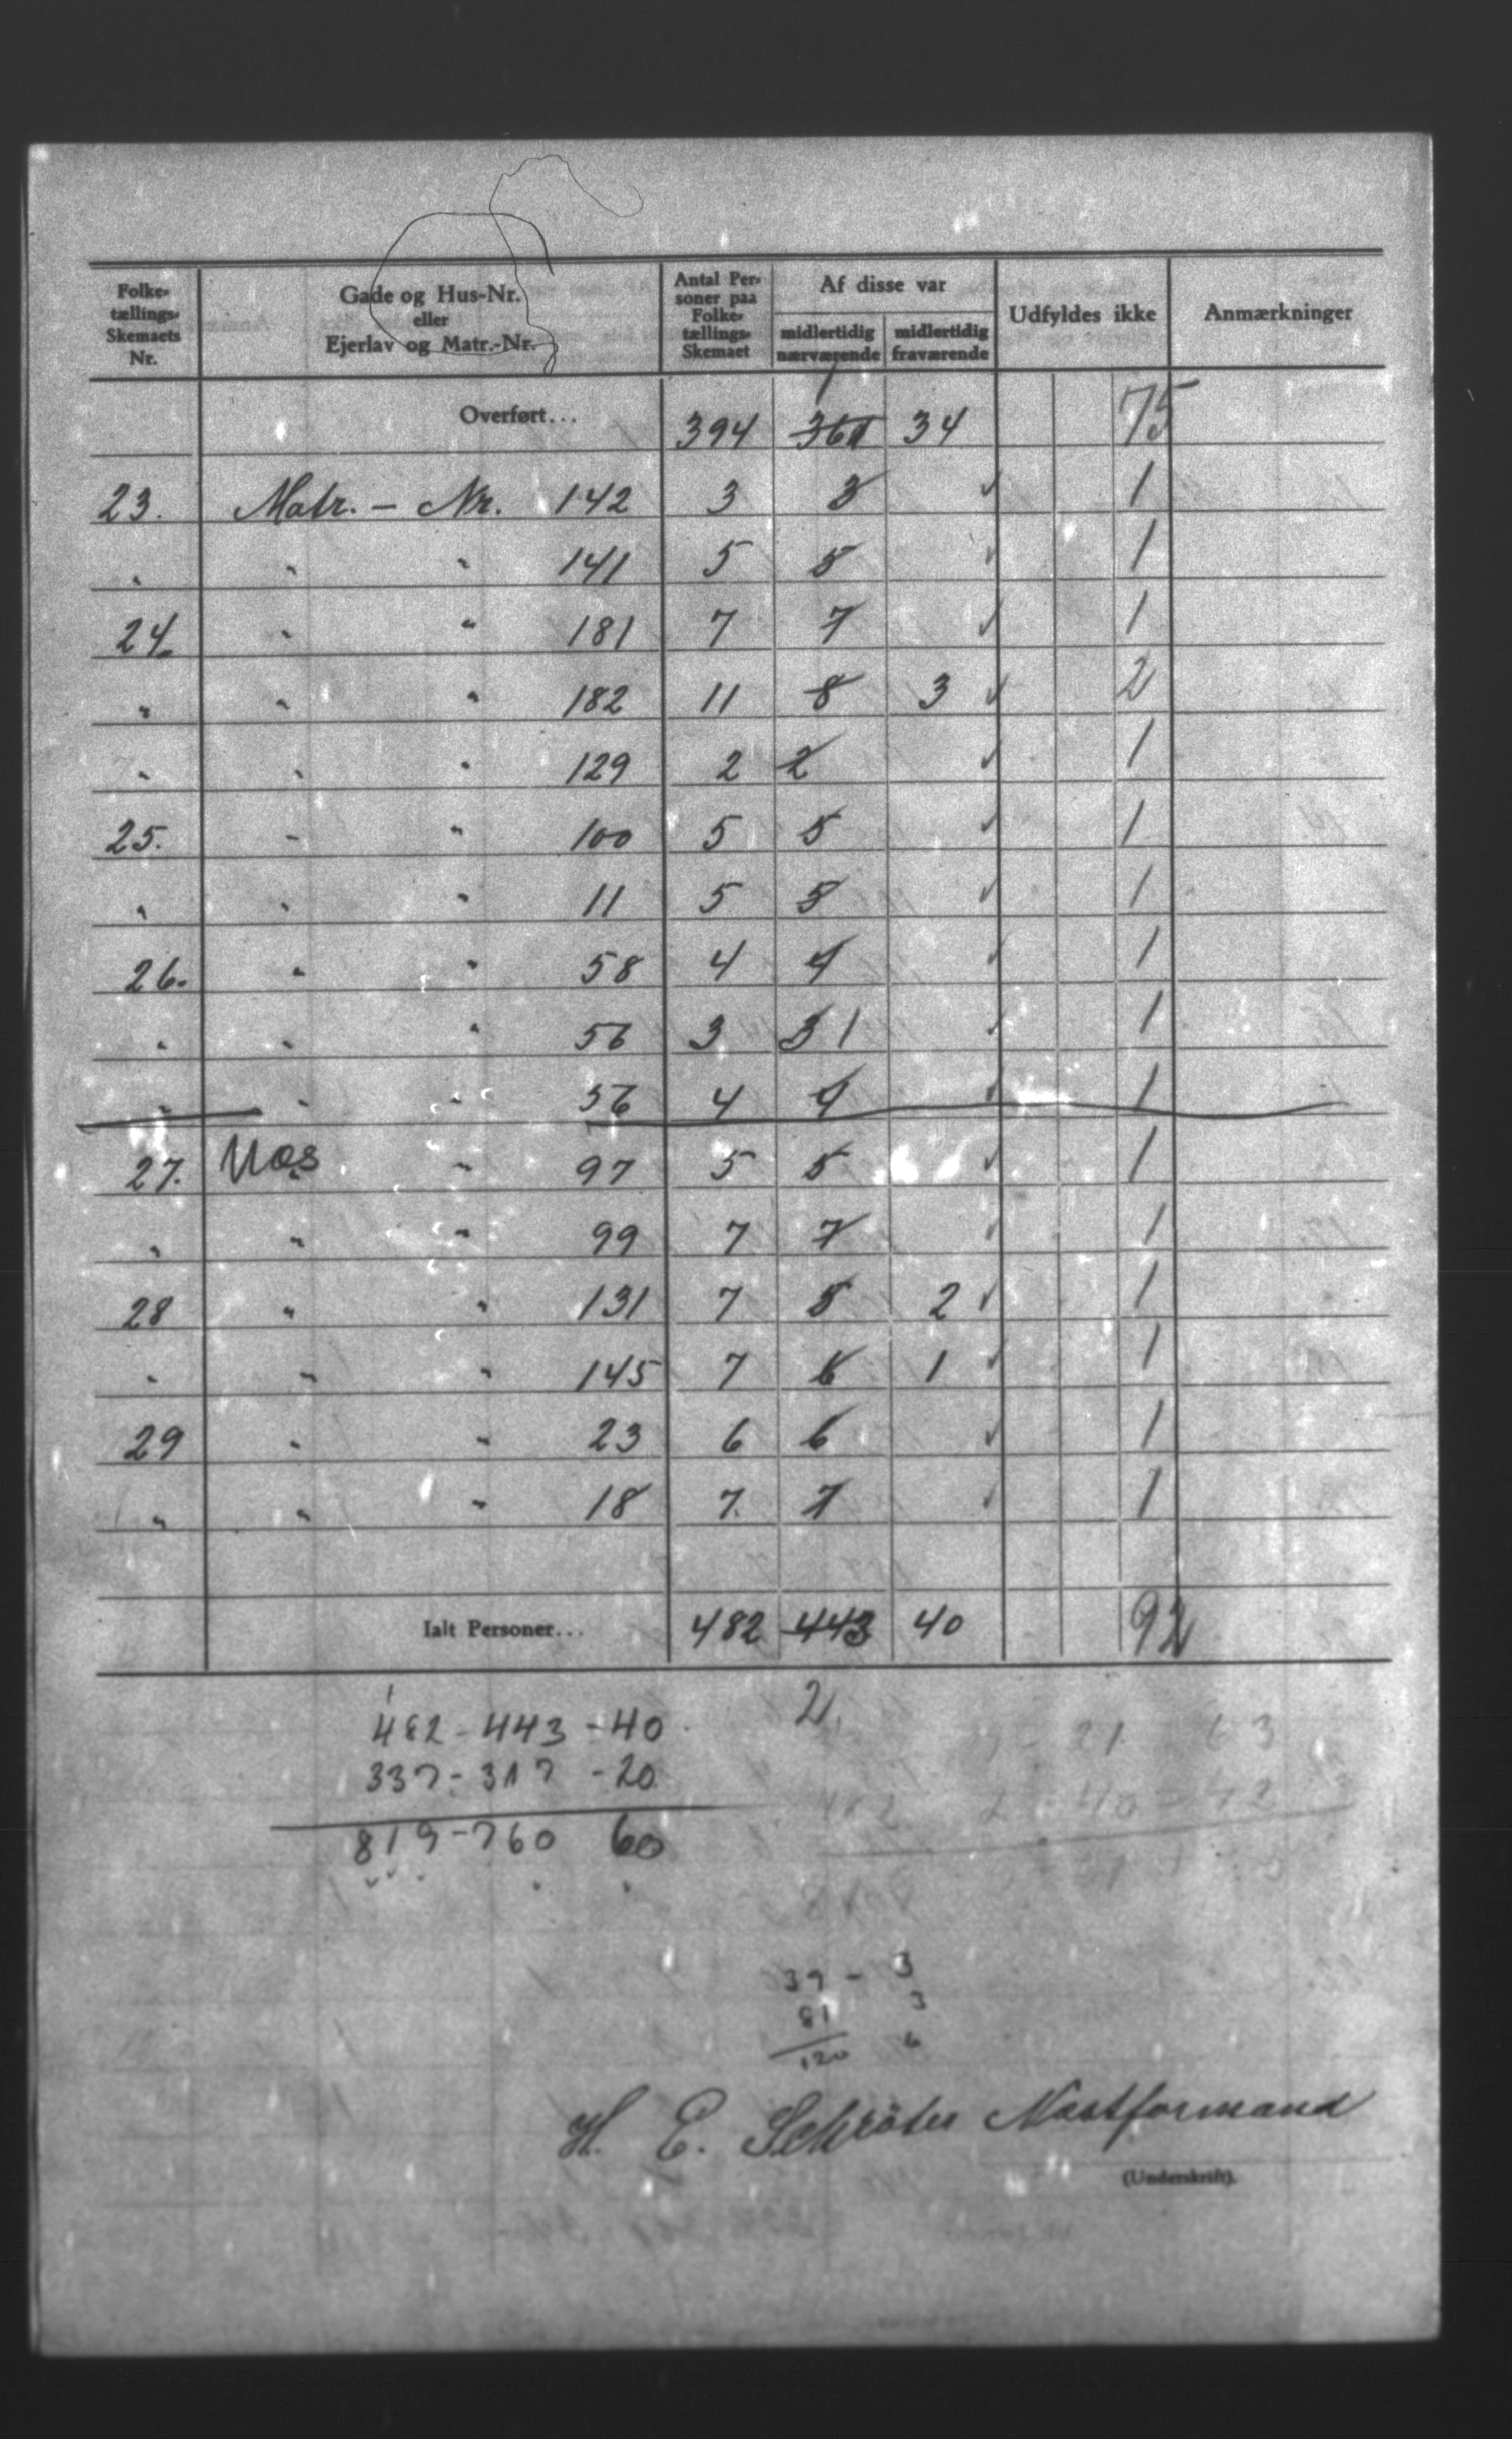 Folketællings-Skemaets Nr. | Gade og Hus-Nr. eller Ejerlav og Matr.-Nr. | Antal Personer paa Folketællings-Skemaet | Af disse var midlertidig nærværende | midlertidig fraværende | Udfyldes ikke | Anmærkninger
Overført... 394 361 1 34 75
23. Matr. - Nr. 142 3 3 ✓ 1
" " " 141 5 5 ✓ 1
24. " " 181 7 7 ✓ 1
" " " 182 11 8 3 ✓ 2
" " " 129 2 2 ✓ 1
25. " " 100 5 5 ✓ 1
" " " 11 5 5 ✓ 1
26. " " 58 4 4 ✓ 1
" " " 56 3 3 1 ✓ 1
" " " 56 4 4 ✓ 1
27. " 97 5 5 ✓ 1
" " " 99 7 7 ✓ 1
28 " " 131 7 5 2 ✓ 1
" " " 145 7 6 1 ✓ 1
29 " " 23 6 6 ✓ 1
" " " 18 7. 7 ✓ 1
Ialt Personer... 482 443 40 92
2.
482 - 443 - 40
337 - 317 - 20
819 - 760 60
39 - 3
81 3
120 6
H. E. Schröter
(Underskrift).